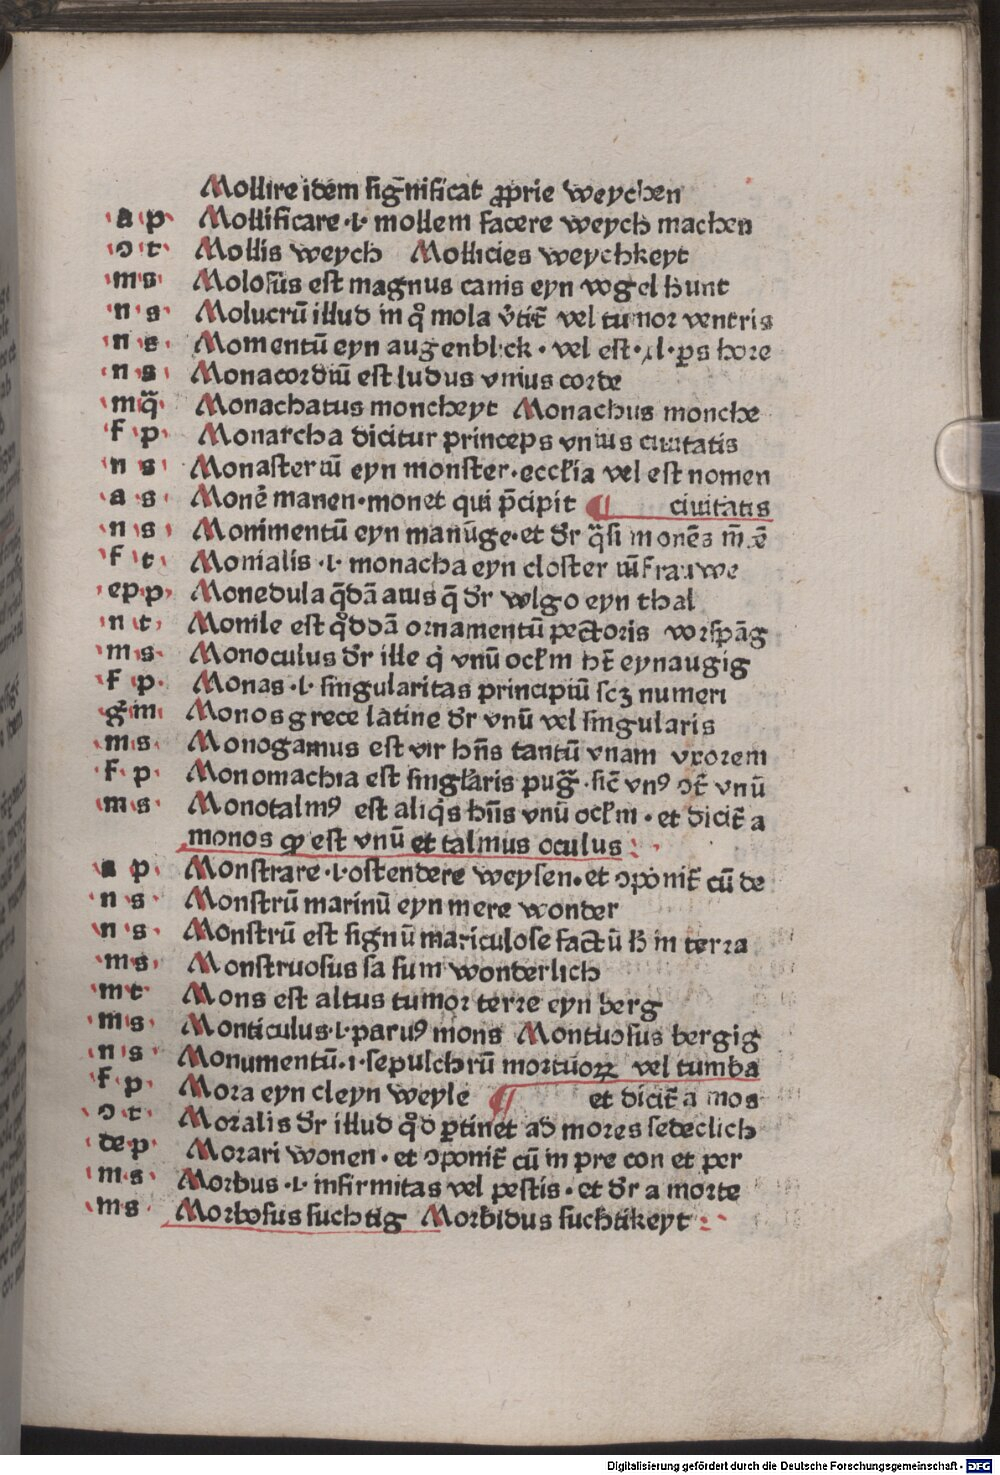 Mollire idem sigñificat ꝓprie weychen
a p Mollificare ·l· mollem facere weych machen
ↄ t Mollis weych Mollicies weychkeyt
m s Molosūs est magnus canis eyn vogel hunt
n s Molucrū illud in mola vel tumor ventris
n s Momentū eyn augenblick · vel est · xl · ps hore
n s Monacordiū est ludus vnius corde
m q̃ Monachatus moncheyt Monachus monche
f p Monarcha dicitur princeps vnius ciuitatis
n s Monasteriū eyn monster · eccłia vel est nomen
a s Monē manen · monet qui p̄cipit ¶ ciuitatis
n s Monimentū eyn manūge · et dr̄ q̃si monēs m̄tē
f t Monialis ·l· monacha eyn closter iūfrauwe
ep p Monedula q̄dā auis q̄ dr̄ wlgo eyn thal
n t Monile est qd̊dā ornamentū pectoris vorspāg
m s Monoculus dr̄ ille qͥ vnū ocłm ht̄ eynaugig
f p Monas ·l· singularitas principiū scꝫ numeri
g̊ m Monos grece latine dr̄ vnū vel singularis
m s Monogamus est vir hn̄s tantū vnam vxorem
f p Monomachia est singłaris pug̃ · sic̄ vnꝰ ↄt̄ vnū
m s Monotalmꝰ est aliqͥs hn̄s vnū ocłm · et dicit̄ a
monos qp est vnū et talmus oculus :
a p Monstrare ·l· ostendere weysen · et ↄponit̄ cū de
n s Monstrū marinū eyn mere wonder
n s Monstrū est signū mariculose factū in terra
m s Monstruosus sa sum wonderlich
m t Mons est altus tumor terre eyn berg
m s Monticulus ·l· paruꝰ mons Montuosus bergig
n s Monumentū · i · sepulchrū mortuoꝝ vel tumba
f p Mora eyn cleyn weyle ¶ et dicit̄ a mos
ↄ t Moralis dr̄ illud qd̊ ꝑtinet ad mores sedeclich
de p Morari wonen · et ↄponit̄ cū in pre con et per
m s Morbus ·l· infirmitas vel pestis · et dr̄ a morte
m s Morbosus suchtig Morbidus suchtikeyt :
Digitalisierung gefördert durch die Deutsche Forschungsgemeinschaft - DFG